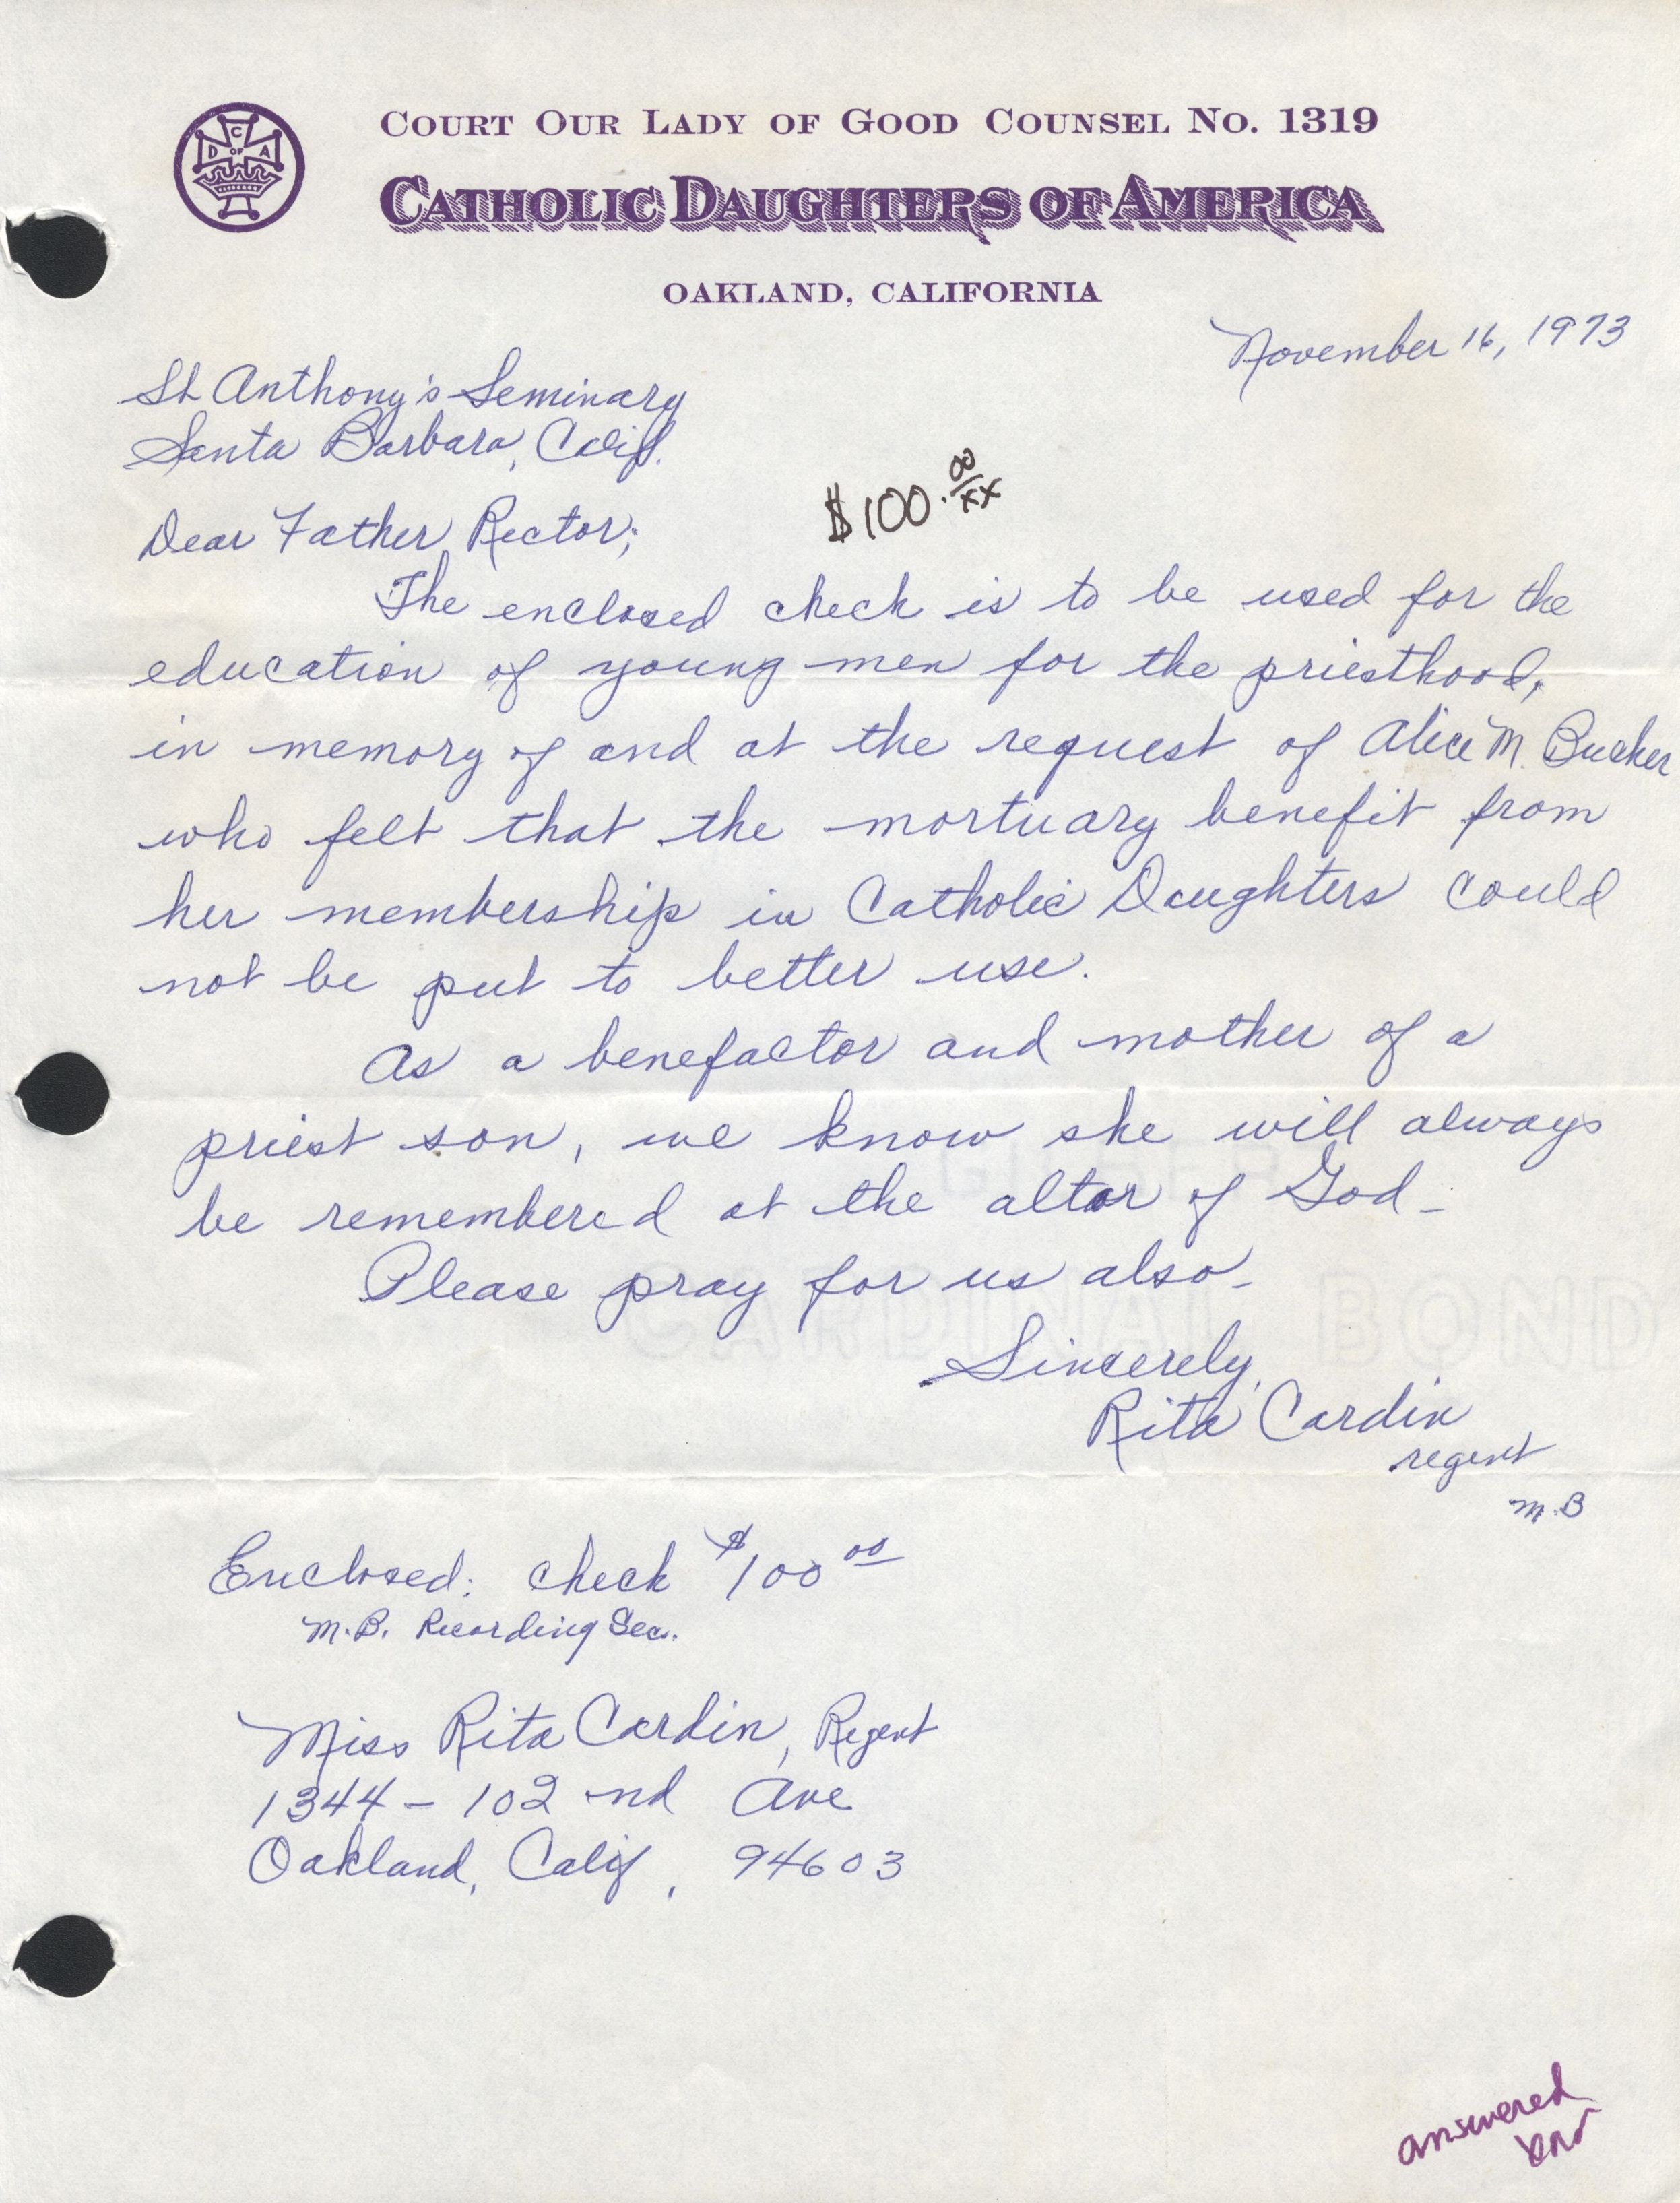 C
D OF A
COURT OUR LADY OF GOOD COUNSEL NO. 1319
CATHOLIC DAUGHTERS OF AMERICA
OAKLAND, CALIFORNIA
November 16, 1973
St Anthony's Seminary
Santa Barbara, Calif.
$100.00/xx
Dear Father Rector;
The enclosed check is to be used for the
education of young men for the priesthood,
in memory of and at the request of Alice M. Busher
who felt that the mortuary benefit from
her membership in Catholic Daughters could
not be put to better use.
As a benefactor and mother of a
priest son, we know she will always
be remembered at the altar of God_
Please pray for us also_
CARDINAL BOND
Sincerely,
Rita Cardin
regent
M.B
Enclosed: check $100 00
M.B. Recording Sec.
Miss Rita Cardin, Regent
1344 - 102 nd Ave
Oakland, Calif, 94603
answered